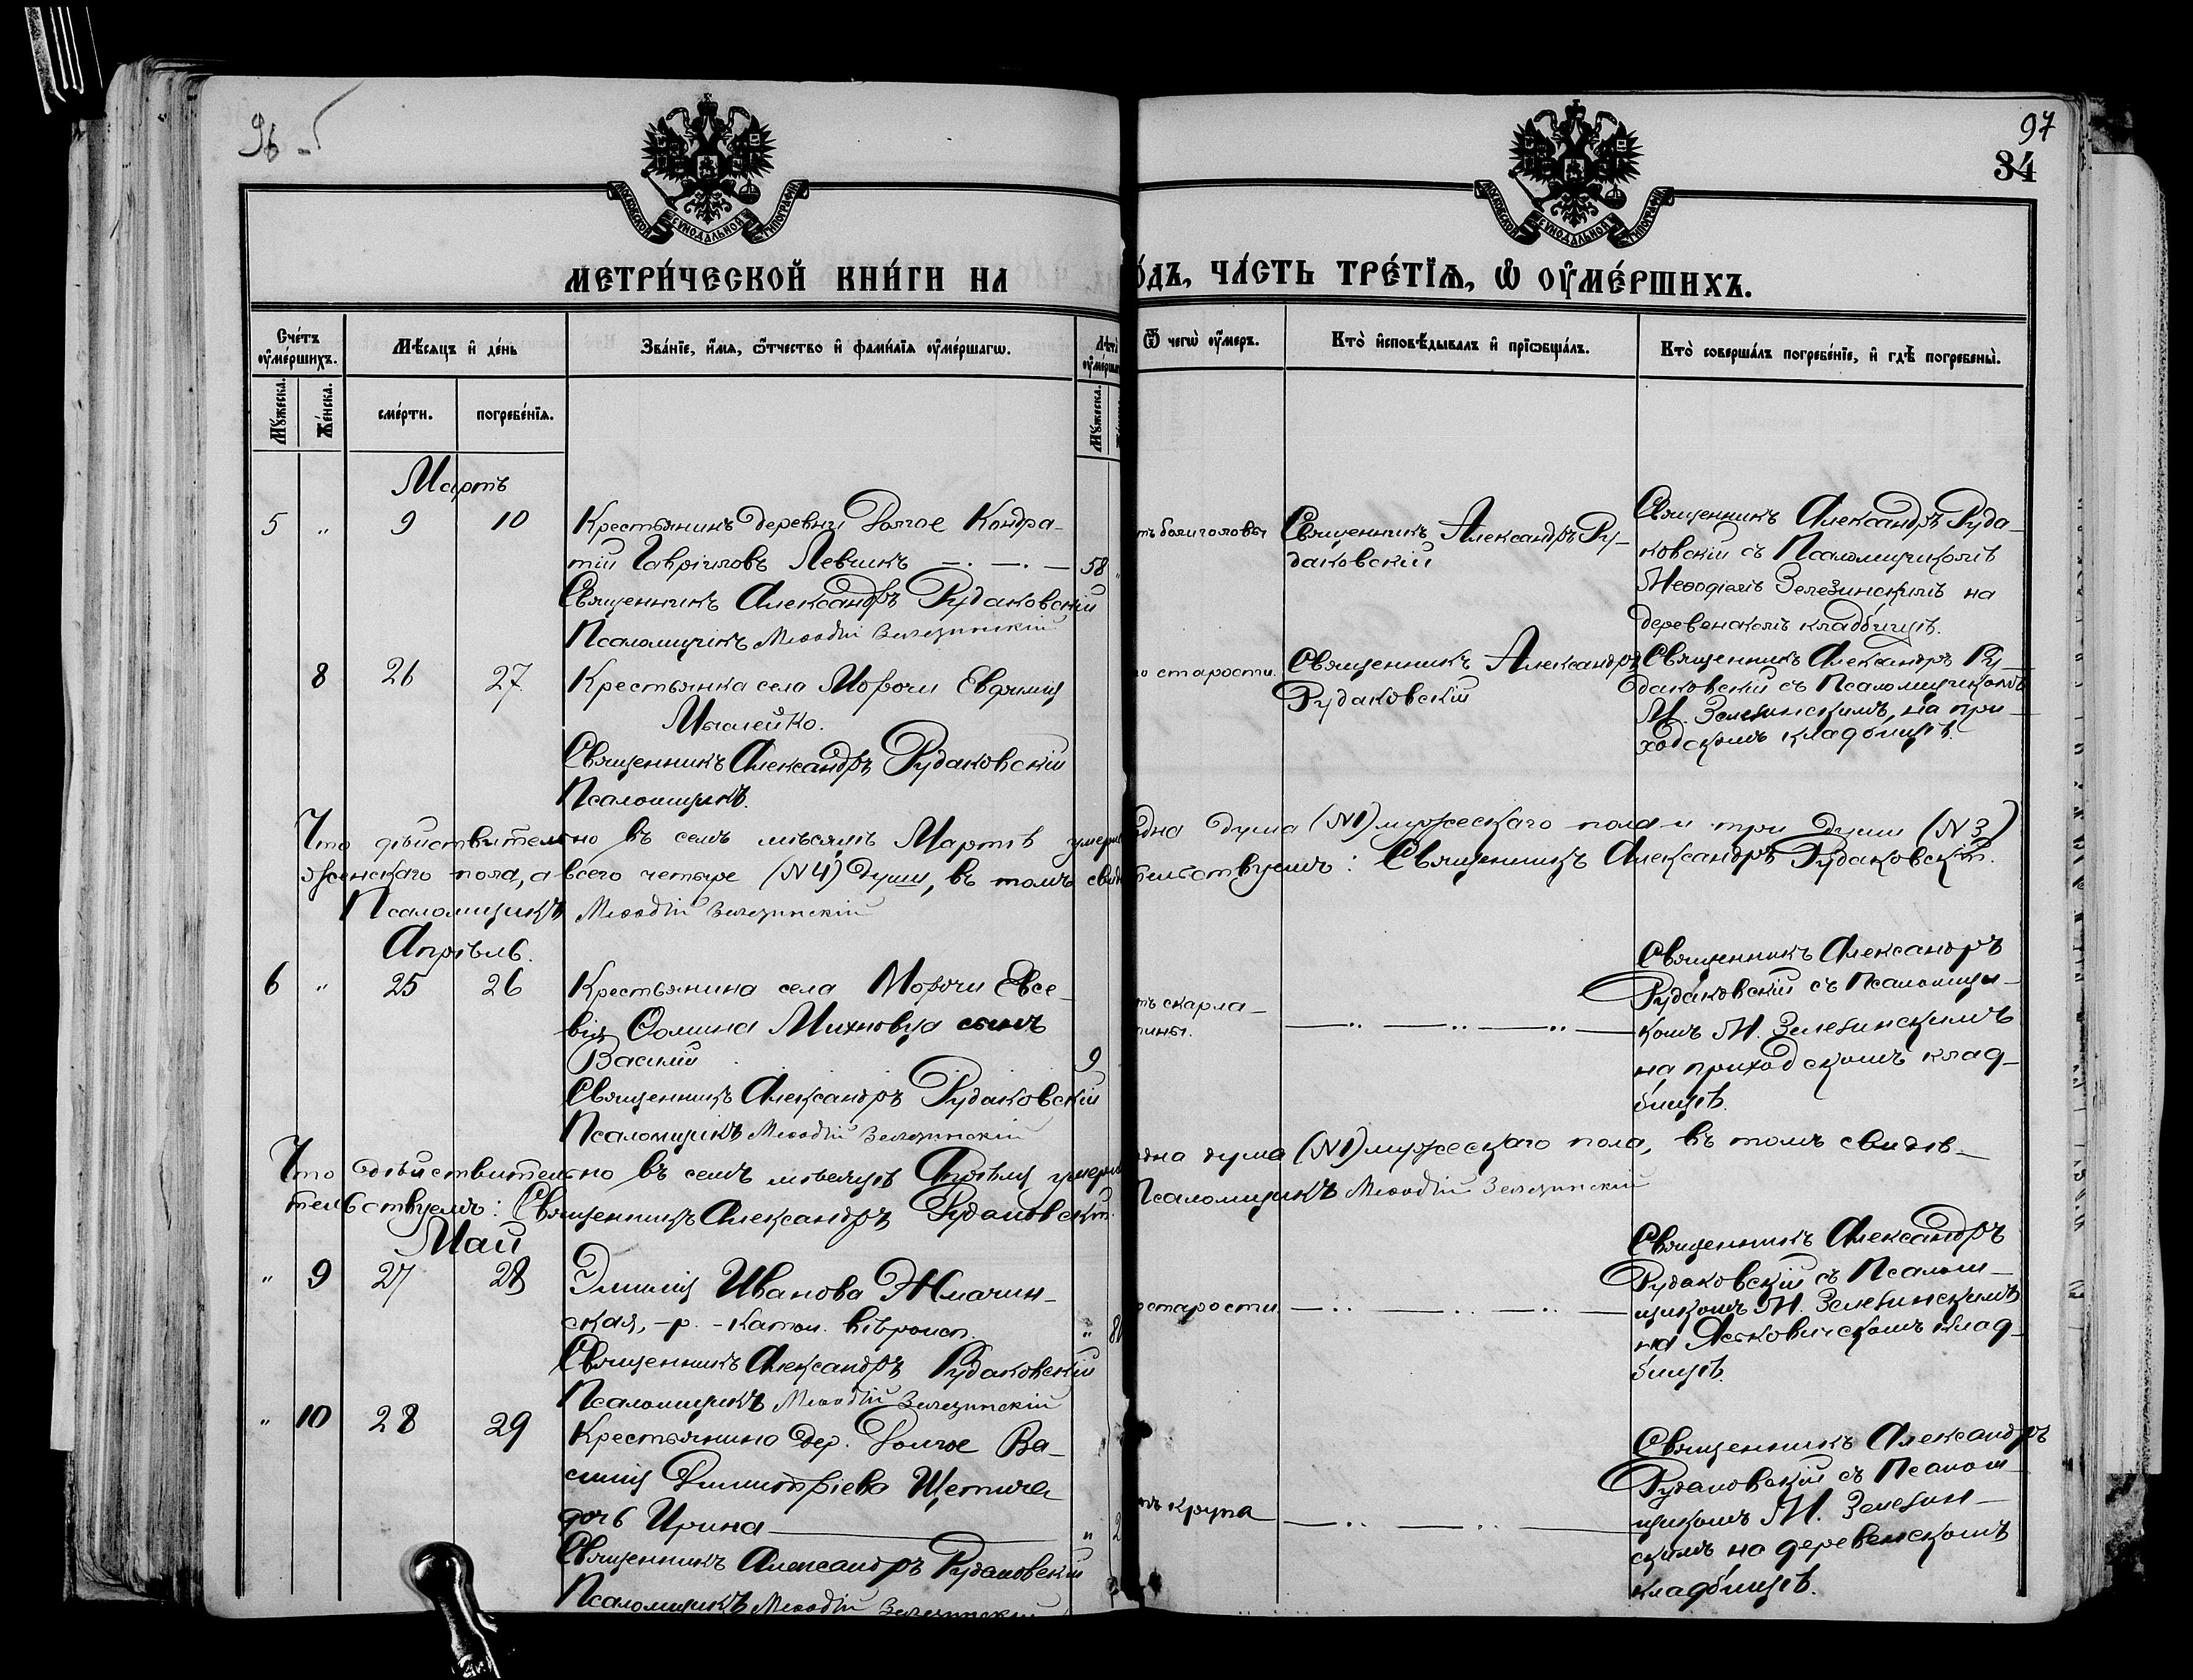 96
97
34
МОСКОВСКОЙ СѴНОДАЛЬНОЙ ТИПОГРАФІИ
МОСКОВСКОЙ СѴНОДАЛЬНОЙ ТИПОГРАФІИ
МЕТРИ́ЧЕСКОЙ КНИ́ГИ НА
О́ДЪ, ЧА́СТЬ ТРЕ́ТІѦ, Ѡ҆ ОУ҆МЕ́РШИХЪ.
Сче́тъ оу҆ме́ршихъ.
Мѣ́сѧцъ и҆ де́нь
Зва́нїе, и҆́мѧ, ѻ҆́тчество и҆ фами́лїѧ оу҆ме́ршагѡ.
Ѿ чегѡ̀ оу҆́меръ.
Кто̀ и҆сповѣ́дывалъ и҆ прїѡбща́лъ.
Кто̀ соверша́лъ погребе́нїе, и҆ гдѣ̀ погребены̀.
Мꙋ́жеска.
Же́нска.
сме́рти.
погребе́нїѧ.
Мꙋ́жеска.
Мартъ
5 " 9 10 Крестьянинъ деревни Долгое Кондра-
тій Гавріиловъ Левчикъ 58
Священникъ Александръ Рудаковскій
Псаломщикъ Меѳодій Зелезинскій
болиголовы
Священникъ Александръ Ру-
даковскій
Священникъ Александръ Руда-
ковскій съ Псаломщикомъ
Меѳодіемъ Зелезинскимъ на
деревенскомъ кладбищѣ.
8 26 27 Крестьянка села Морочи Евфимія
Мылейко.
Священникъ Александръ Рудаковскій
Псаломщикъ.
старости.
Священникъ Александръ
Рудаковскій
Священникъ Александръ Ру-
даковскій съ Псаломщикомъ
М. Зелезинскимъ, на при-
ходскомъ кладбищѣ.
Что дѣйствительно въ семъ мѣсяцѣ Мартѣ умерла одна душа (№1) мужескаго пола и три души (№3)
женскаго пола, а всего четыре (№4) души, въ томъ свидѣтельствуемъ: Священникъ Александръ Рудаковскій.
Псаломщикъ Меѳодій Зелезинскій
Апрѣль.
6 " 25 26 Крестьянина села Морочи Евсе-
вія Ѳомина Михновца сынъ
Василій 9
Священникъ Александръ Рудаковскій
Псаломщикъ Меѳодій Зелезинскій
скарла-
тины.
Священникъ Александръ
Рудаковскій съ Псаломщи-
комъ М. Зелезинскимъ
на приходскомъ клад-
бищѣ.
Что дѣйствительно въ семъ мѣсяцѣ Апрѣлѣ умерла одна душа (№1) мужескаго пола, въ томъ свидѣ-
тельствуемъ: Священникъ Александръ Рудаковскій. Псаломщикъ Меѳодій Зелезинскій
Май
" 9 27 28 Эмилія Иванова Жмачин-
ская, -р. -катол. вѣроисп.
Священникъ Александръ Рудаковскій
Псаломщикъ Меѳодій Зелезинскій
старости.
Священникъ Александръ
Рудаковскій съ Псалом-
щикомъ М. Зелезинскимъ
на Яськовичскомъ клад-
бищѣ.
" 10 28 29 Крестьянина дер. Долгое Ва-
силія Димитріева Щетича
дочь Ирина " 2
Священникъ Александръ Рудаковскій
Псаломщикъ Меѳодій Зелезинскій
крупа
Священникъ Александръ
Рудаковскій съ Псалом-
щикомъ М. Зелезин-
скимъ на деревенскомъ
кладбищѣ.